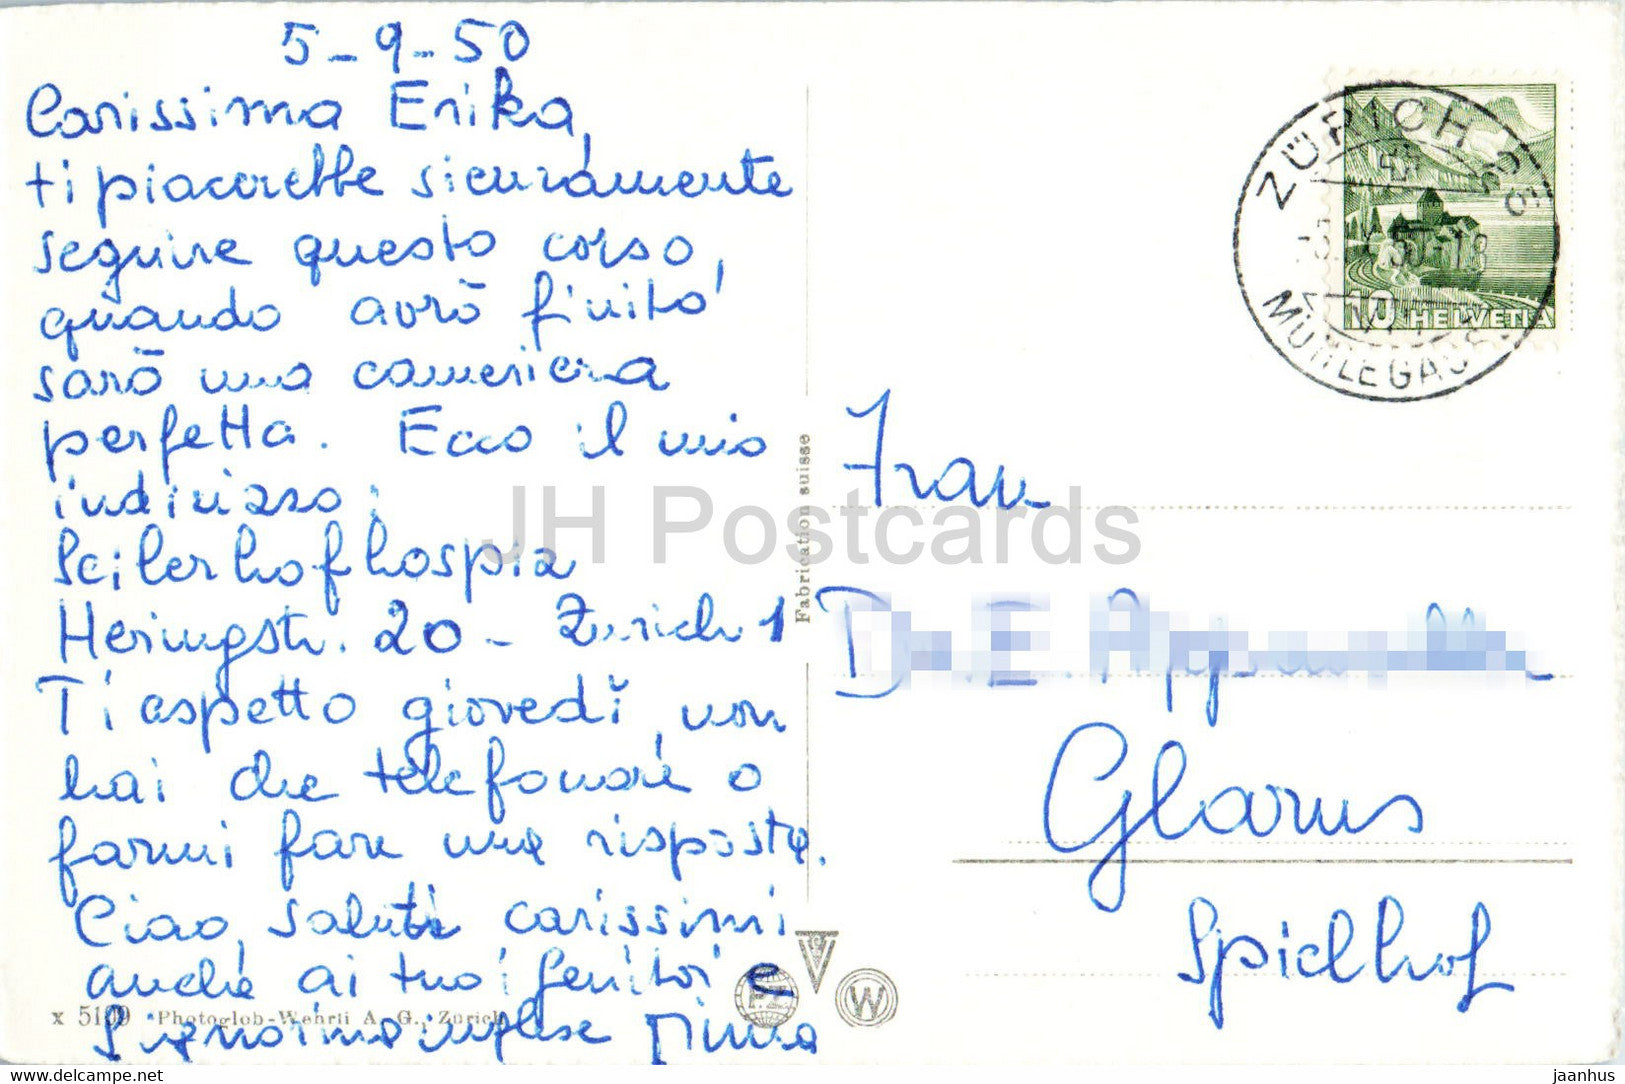 5-9-50
Carissima Erika,
ti piacerebbe sicuramente
seguire questo corso,
quando avrò finito
sarò una cameriera
perfetta. Ecco il mio
indirizzo:
Seilerhofhospiz
Heringstr. 20 - Zürich 1
Ti aspetto giovedì, non
hai che telefonare o
farmi fare una risposta.
Ciao, saluti carissimi
anche ai tuoi genitori e
signorina inglese Mima
x 5109 Photoglob-Wehrli A. G., Zürich
Fabrication suisse
P.Z.
W
ZÜRICH
MÜHLEGASSE
10 HELVETIA
Frau
Glarus
Spielhof
JH Postcards
hippostcard.com
jaanhus